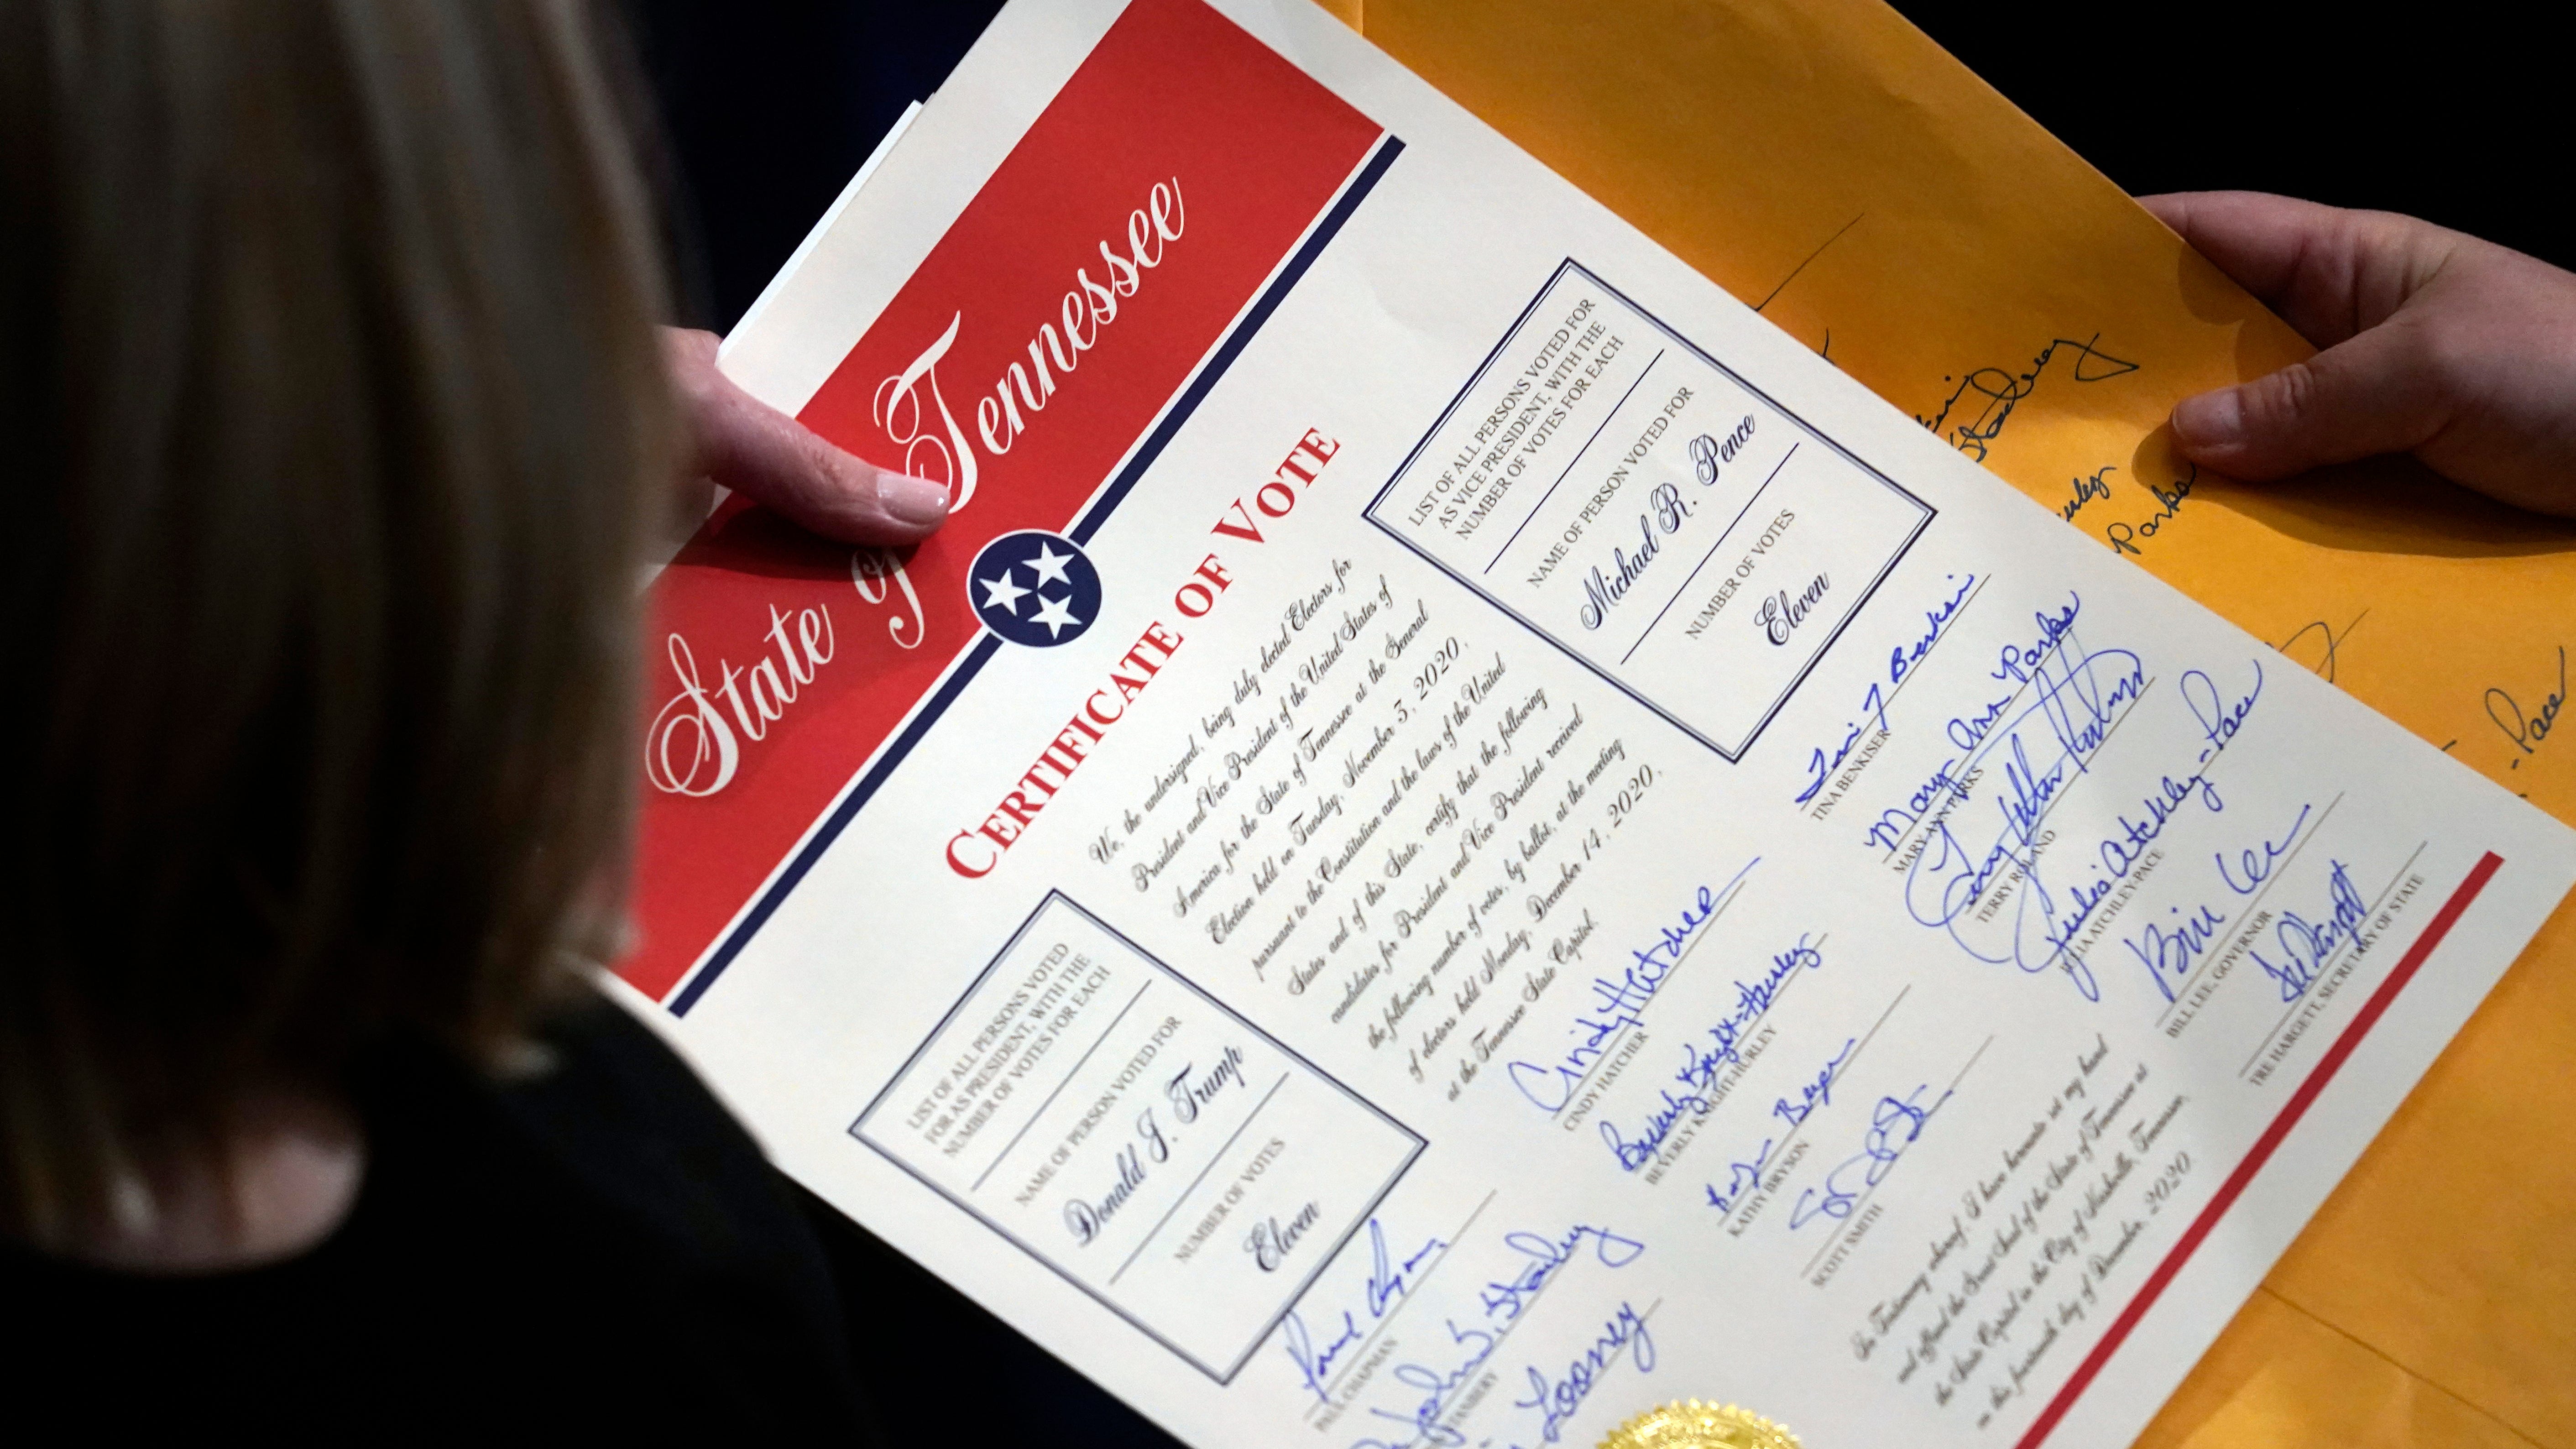 State of Tennessee
CERTIFICATE OF VOTE
We, the undersigned, being duly elected Electors for
President and Vice President of the United States of
America for the State of Tennessee at the General
Election held on Tuesday, November 3, 2020,
pursuant to the Constitution and the laws of the United
States and of this State, certify that the following
candidates for President and Vice President received
the following number of votes, by ballot, at the meeting
of electors held Monday, December 14, 2020,
at the Tennessee State Capitol.
LIST OF ALL PERSONS VOTED
FOR AS PRESIDENT, WITH THE
NUMBER OF VOTES FOR EACH
NAME OF PERSON VOTED FOR
Donald J. Trump
NUMBER OF VOTES
Eleven
LIST OF ALL PERSONS VOTED FOR
AS VICE PRESIDENT, WITH THE
NUMBER OF VOTES FOR EACH
NAME OF PERSON VOTED FOR
Michael R. Pence
NUMBER OF VOTES
Eleven
PAUL CHAPMAN
John Stanbery
STANBERY
Looney
Cindy Hatcher
CINDY HATCHER
Beverly Knight-Hurley
BEVERLY KNIGHT-HURLEY
KATHY BRYSON
SCOTT SMITH
Tina Benkiser
TINA BENKISER
Mary Ann Parks
MARY ANN PARKS
TERRY ROLAND
Julia Atchley-Pace
JULIA ATCHLEY-PACE
Bill Lee
BILL LEE, GOVERNOR
Tre Hargett
TRE HARGETT, SECRETARY OF STATE
In Testimony whereof, I have hereunto set my hand
and affixed the Great Seal of the State of Tennessee at
the State Capitol in the City of Nashville, Tennessee,
on this fourteenth day of December, 2020
Parks
-Pace